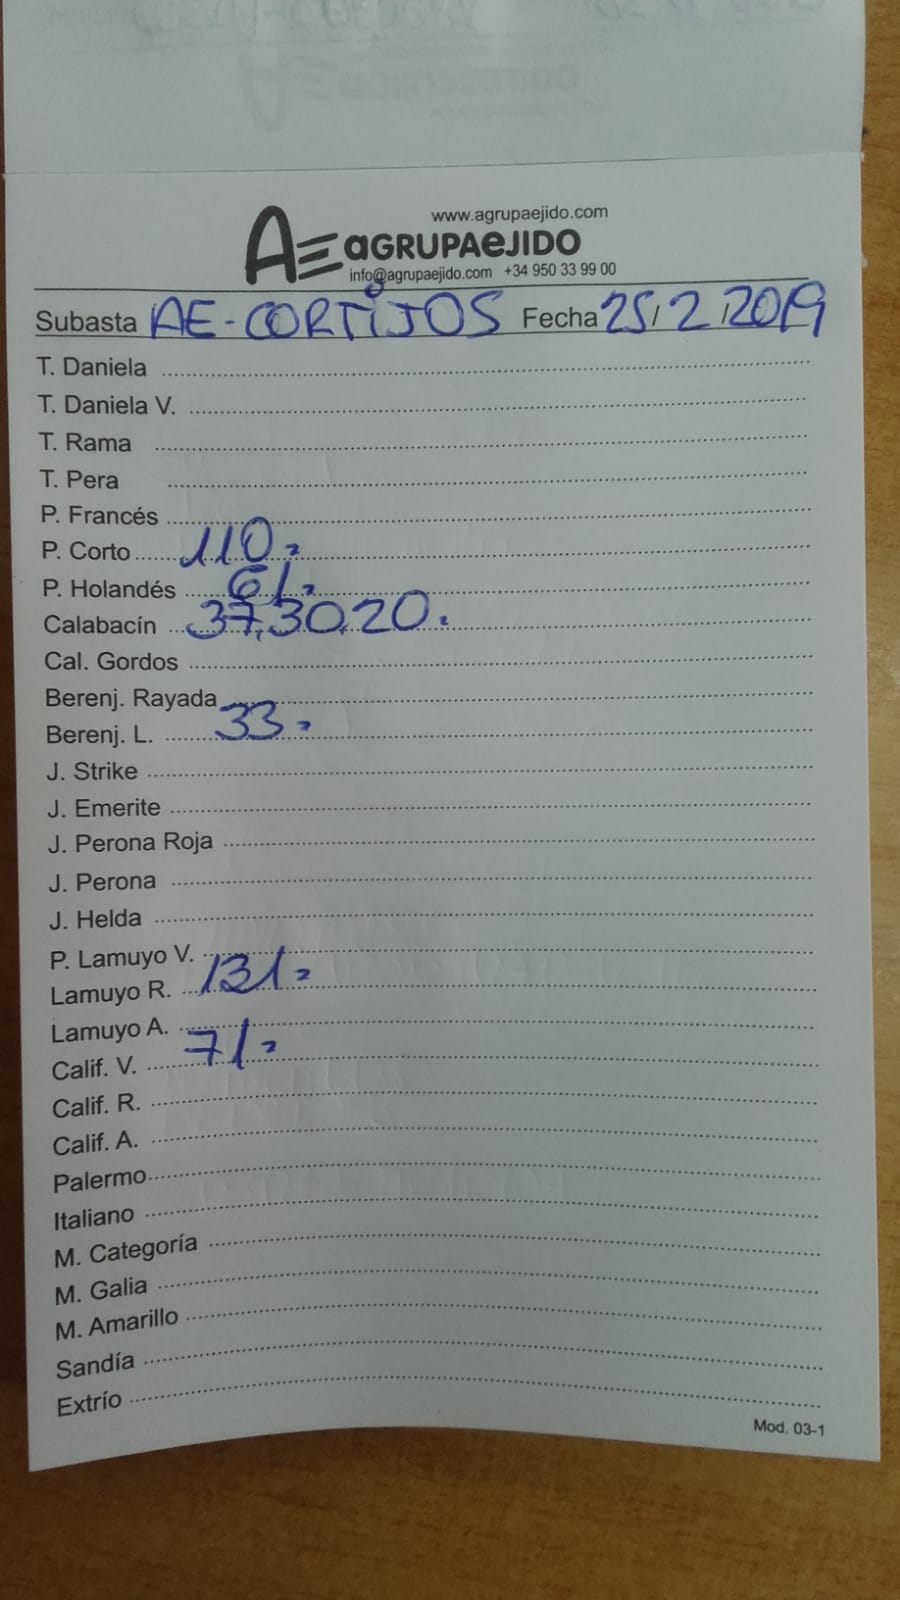 www.agrupaejido.com
AE aGRUPAeJIDO
info@agrupaejido.com +34 950 33 99 00
Subasta AE-CORTIJOS Fecha 25/2/2019
T. Daniela
T. Daniela V.
T. Rama
T. Pera
P. Francés
P. Corto 110.
P. Holandés 61.
Calabacín 37,30,20.
Cal. Gordos
Berenj. Rayada
Berenj. L. 33.
J. Strike
J. Emerite
J. Perona Roja
J. Perona
J. Helda
P. Lamuyo V.
Lamuyo R. 131.
Lamuyo A.
Calif. V. 71.
Calif. R.
Calif. A.
Palermo
Italiano
M. Categoría
M. Galia
M. Amarillo
Sandía
Extrío
Mod. 03-1